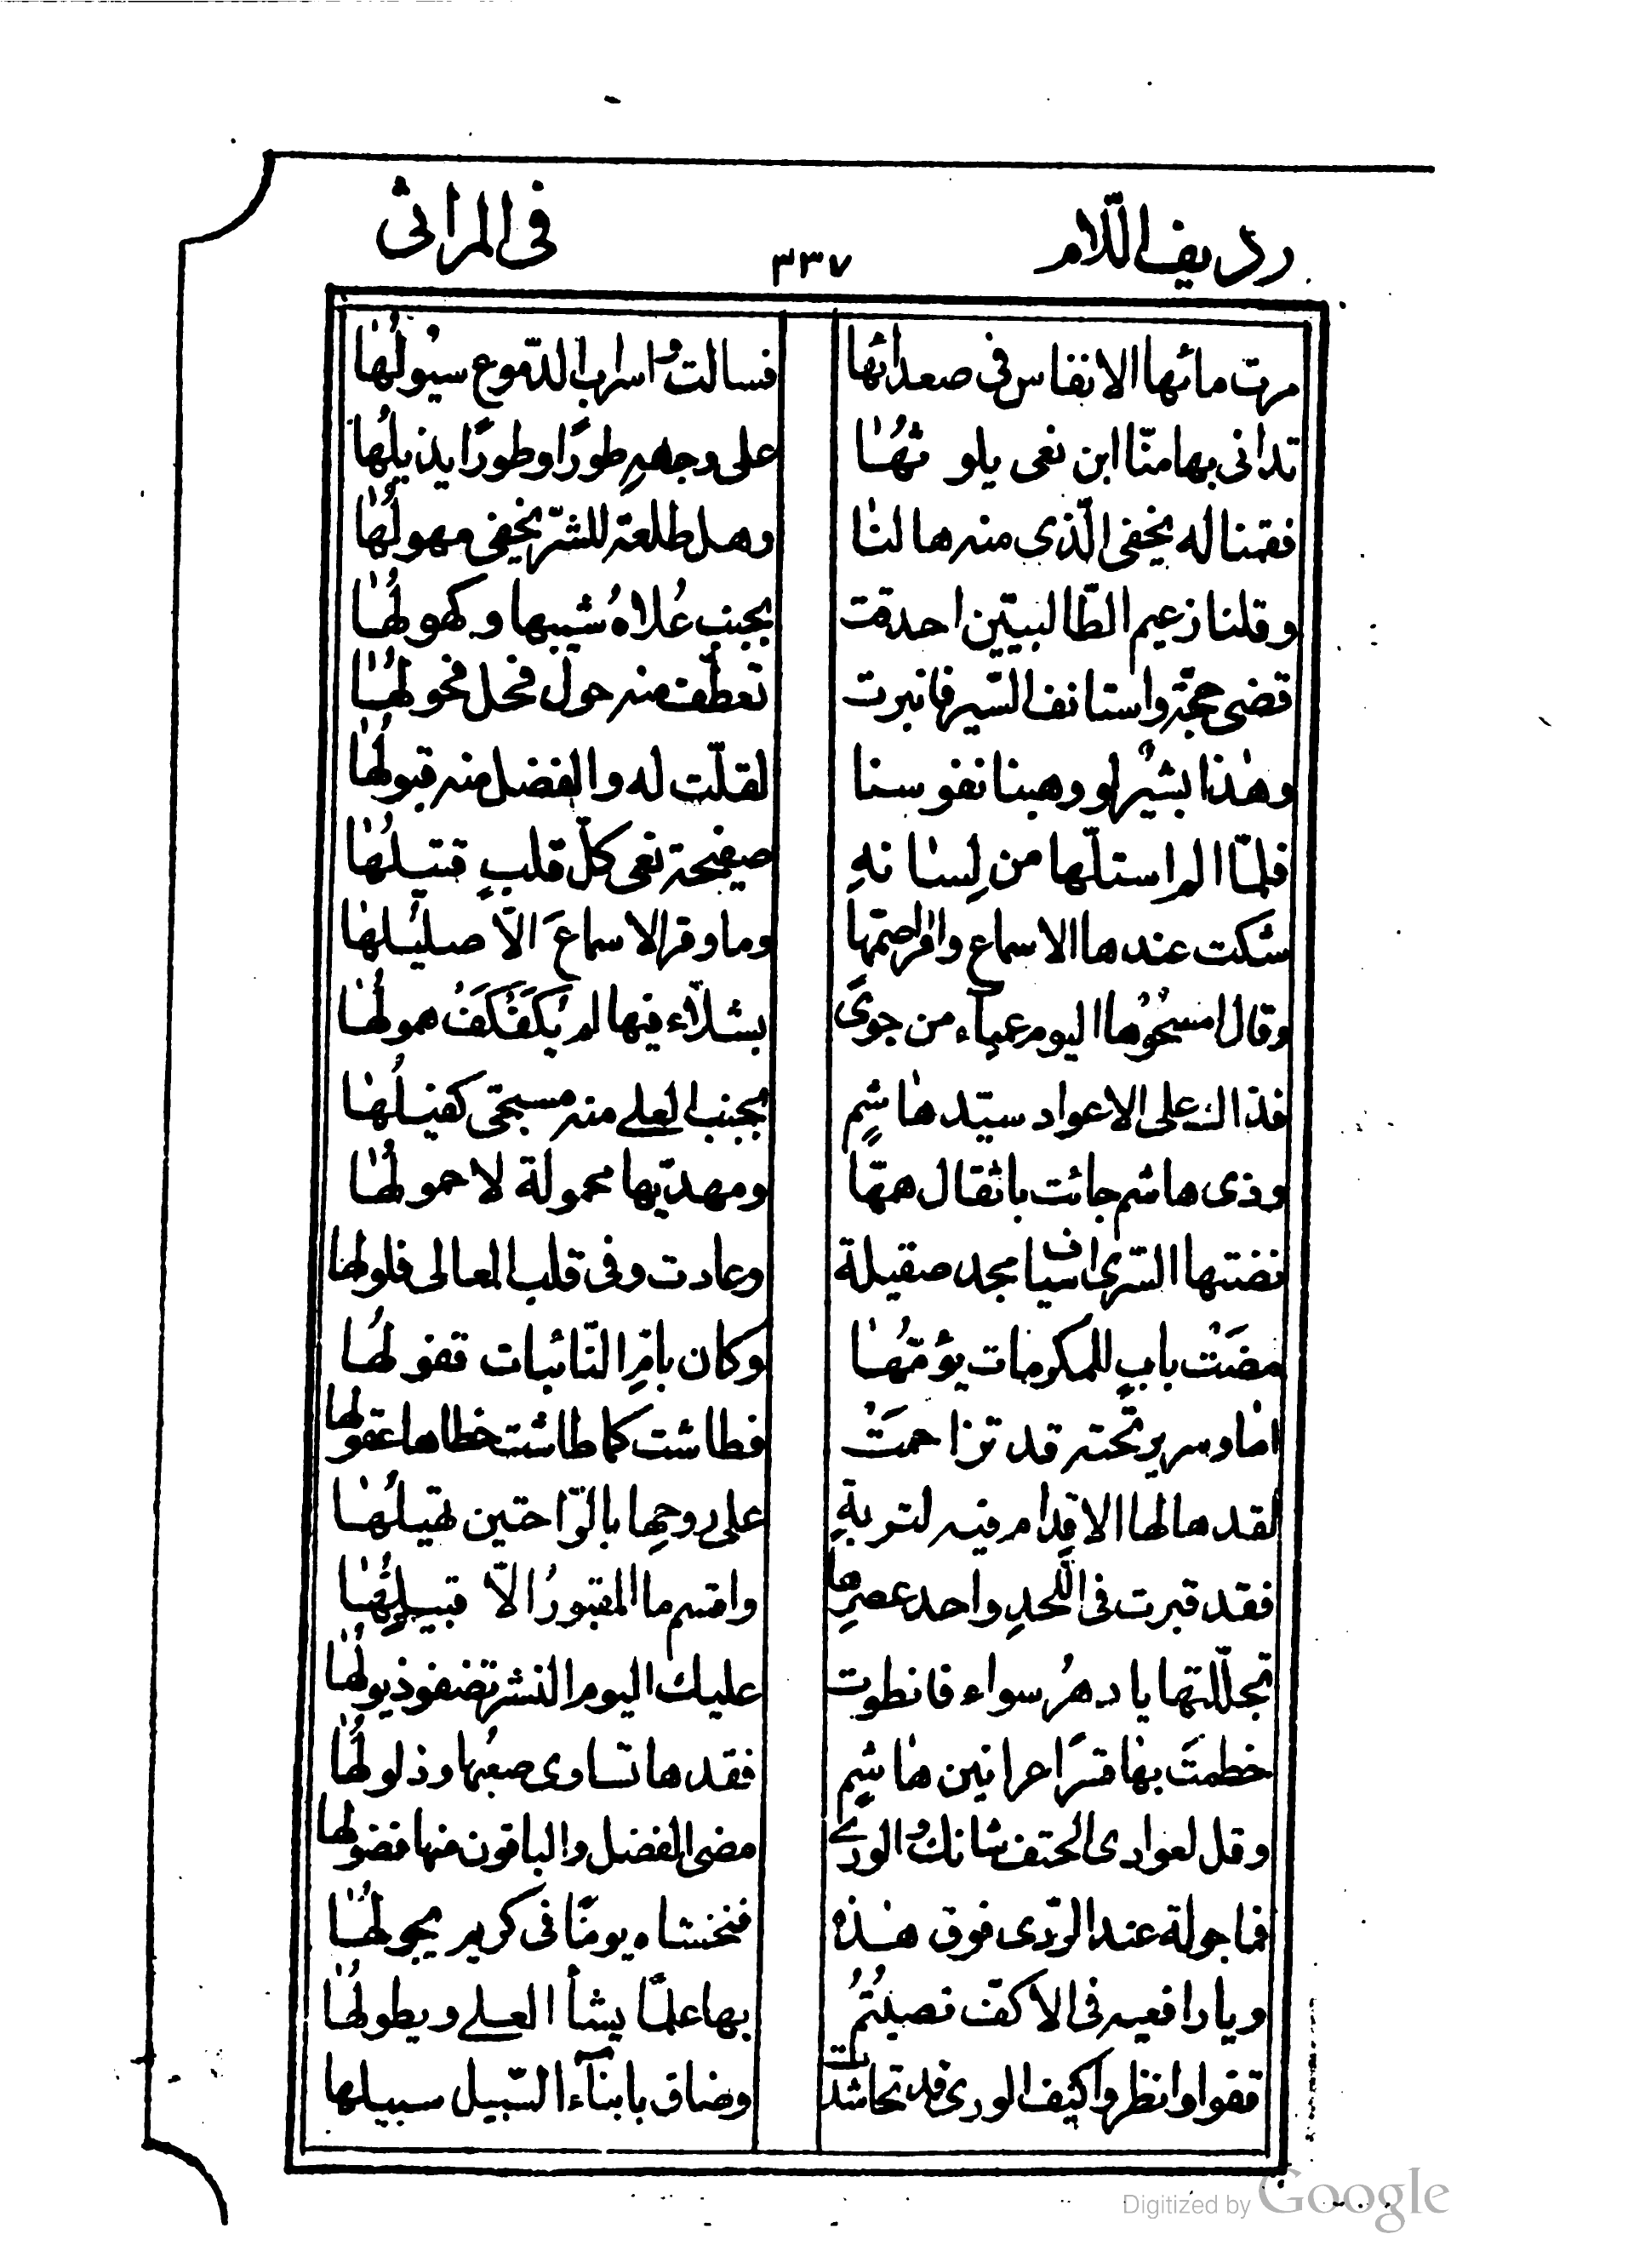 رديف اللّام ٣٣٧ فى المراثى
مرت مائها الانفاس فى صعدائها فسالت واسراب الدّموع سيُولُهٰا
تدانى بها منّا ابن نعى يلوثهٰا على وجههِ طورًا وطورًا يذيلُها
فقمنا له يخفى الّذى منه هالنا وهل طلعة للشرّ يخفى مهولُهٰا
وقلنا زعيم الطّالبيّين احدقت بجنب عُلاهُ شيبها وكهولُهٰا
قضى حجّة واستانف السّير فانبرت تعطّف منه حول فحل فحولهٰا
وهٰذا بشيرٌ لو وهبنا نفوسنا لقلّت له والفضل منه قبولُهٰا
فلمّا الم استلّها من لِسٰانهِ صفيحة نعى كلّ قلبٍ قتيلُهٰا
شكت عندها الاسماع وقرا صمّها وما وقر الاسماعَ الّا صليلُهٰا
وقال امسحُوُها اليوم عمياء من جوىً بشلّاء فيها لم يُكَفكَفُ همولُهٰا
فذاك على الاعواد سيّد هٰاشمٍ بجنب العلے منه مسجّى كفيلُهٰا
وذى هاشم جائت باثقال همّها ومهديّها محمولة لا حمولُهٰا
نضتها السّرى اسياف مجد صقيلة وعادت وفى قلب المعالى فلولها
مضَتْ بابٍ للمكرمات يؤمّهٰا وكان بامِّ النّائبات قفولهٰا
امٰام سرير تحته قد تزاحمَتْ فطاشت كما طاشت خطاها عقولها
لقد هالها الاقدام فيه لتربةٍ على روحِها بالرّاحتين تهيلُهٰا
فقد قبرت فى اللّحدِ واحد عصرِها واقسم ما المقبورُ الّا قبيلُهٰا
تجلّلتها يا دهرُ سواء فانطوت عليك اليوم النشر تضفو ذيولُهٰا
خطمتَ بهٰا قسرًا عرانين هٰاشمٍ فقدها تساوى صعبُها وذلولُهٰا
وقل لعوادى الحتف شانك والورےٰ مضى الفضل والباقون منها فضولُها
فما جولة عند الرّدى فوق هٰذه فنخشاه يومًا فى كريم يجولُهٰا
ويا رافعيه فى الاكفّ نصبتُمُ بها علمًا يشأ العلے ويطولُهٰا
قفوا وانظروا كيف الورى قد تحاشدت وضاق بابنآء السّبيل سبيلها
Digitized by Google